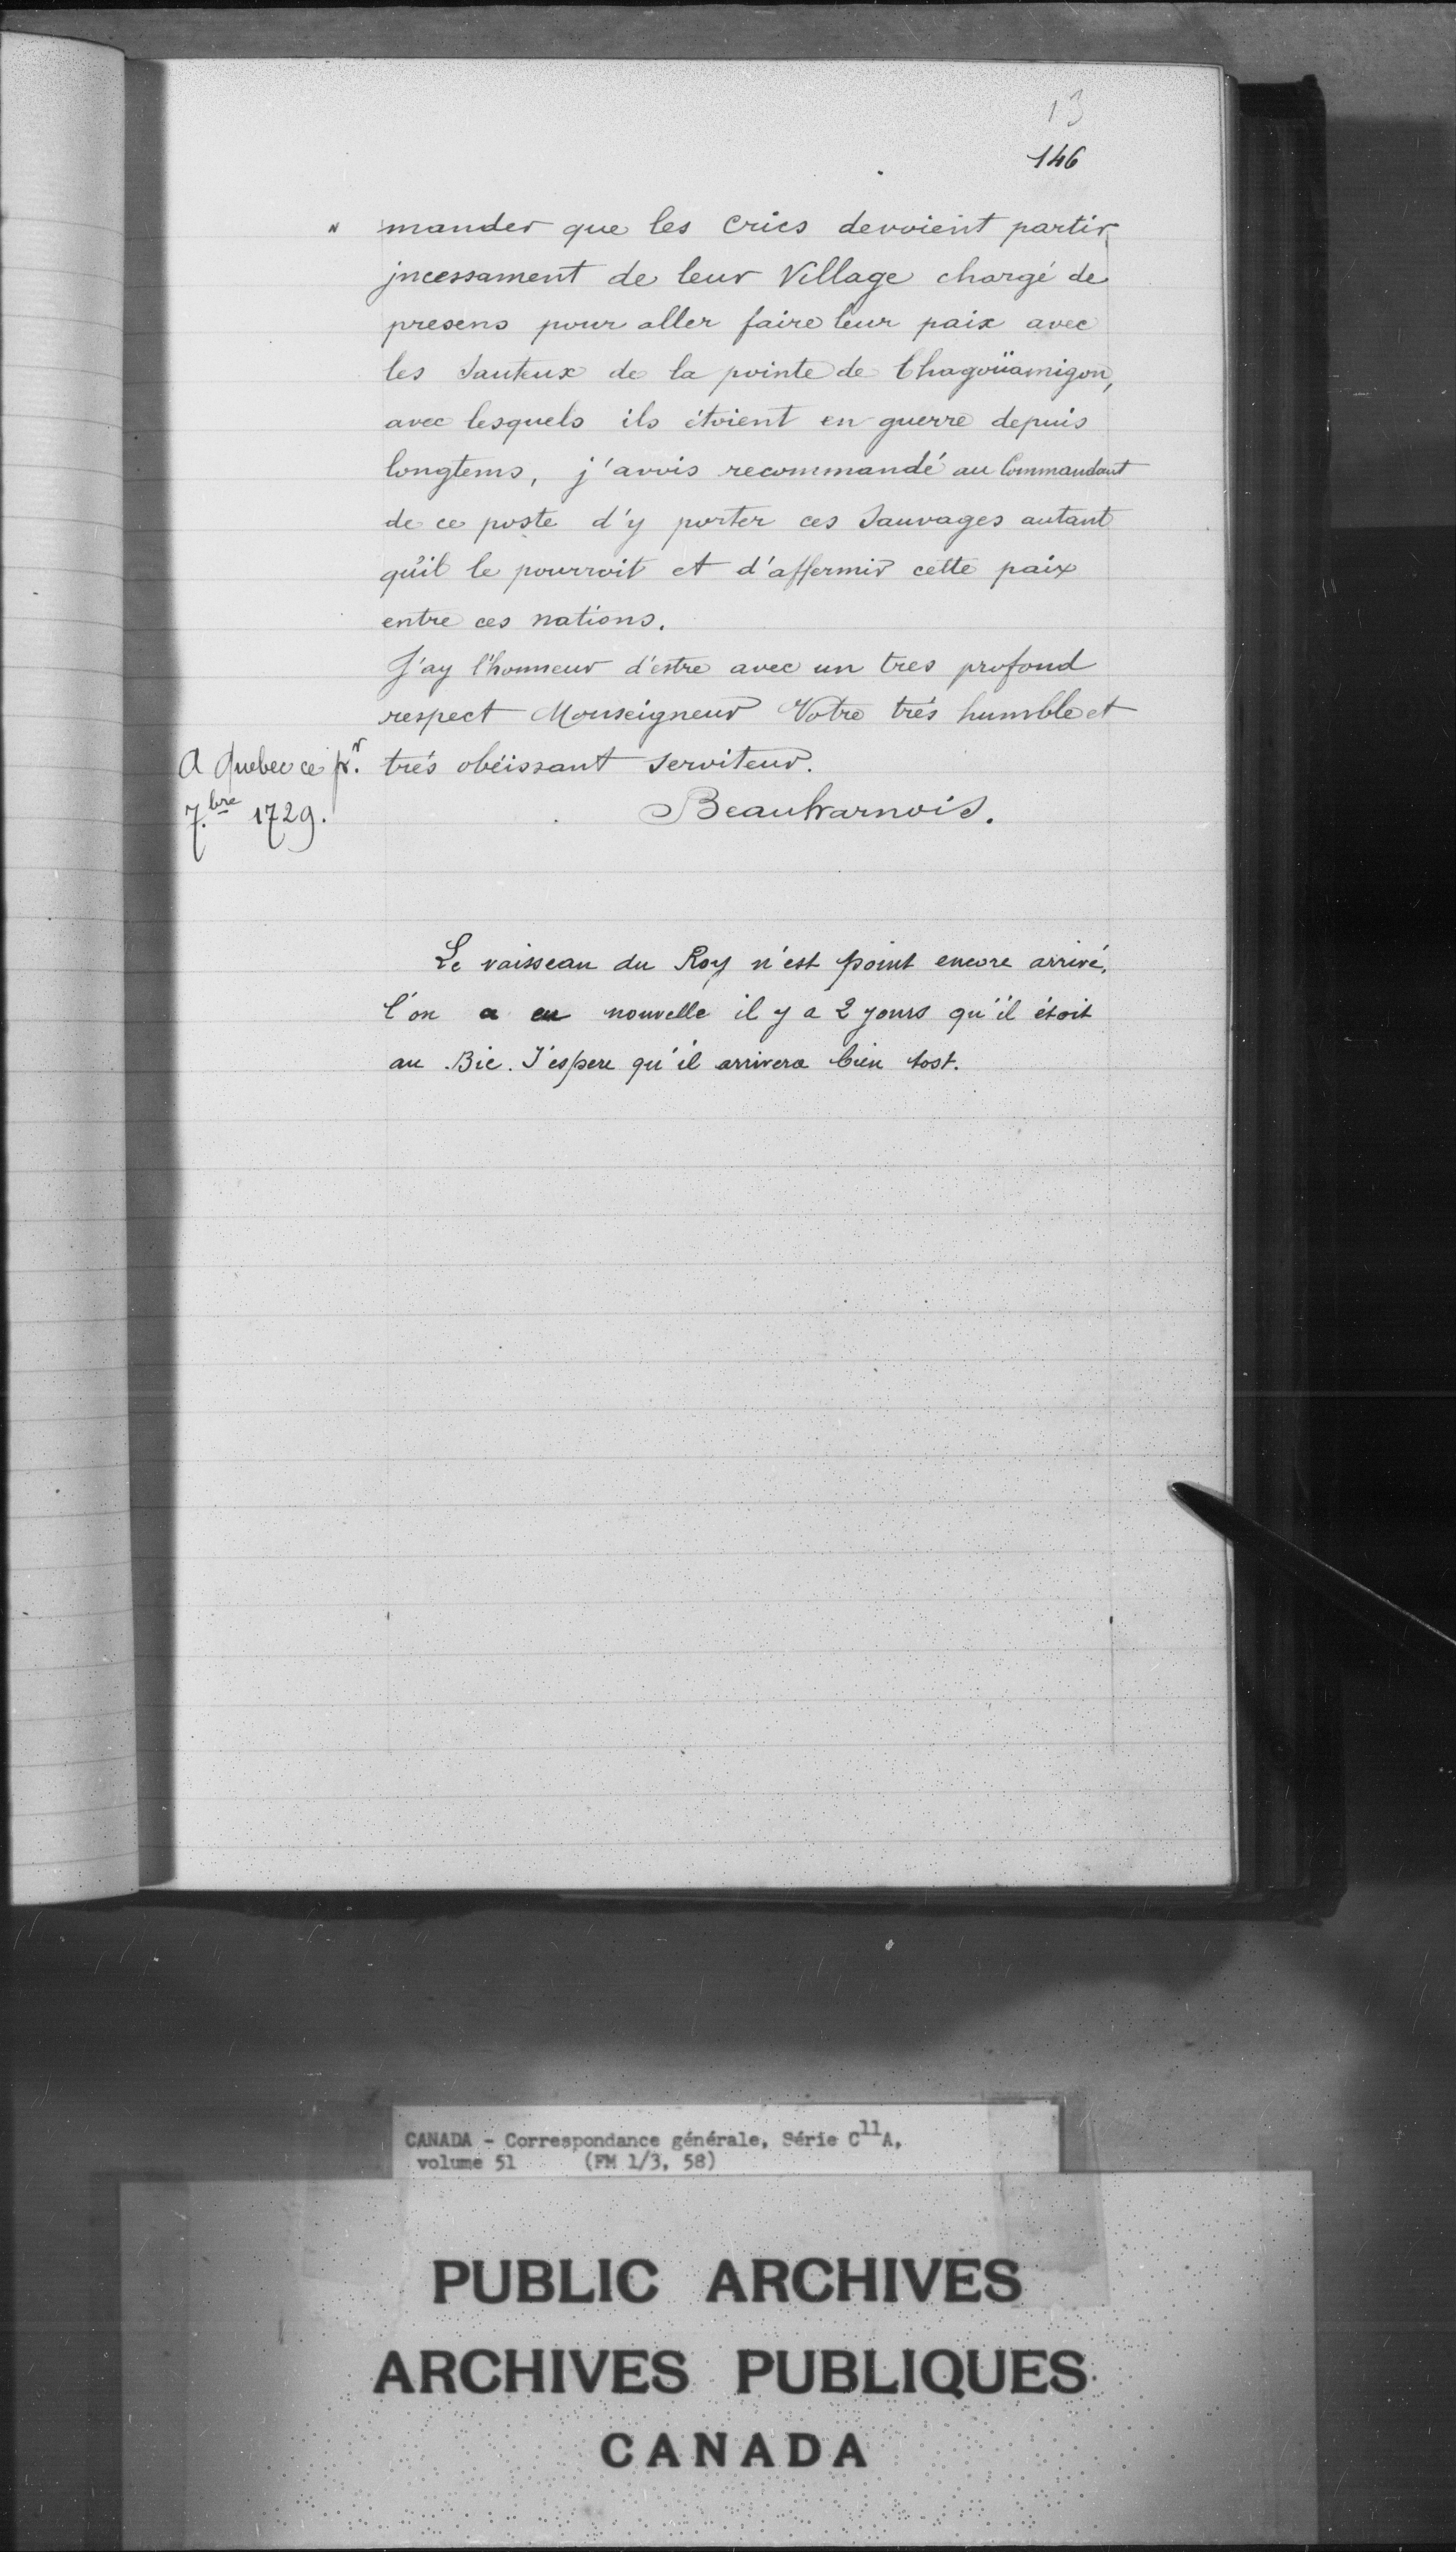 13
146
" mander que les Crics devoient partir
jncessament de leur Village chargé de
presens pour aller faire leur paix avec
les Sauteux de la pointe de Chagoüamigon,
avec lesquels ils étoient en guerre depuis
longtems, j'avois recommandé au Commandant
de ce poste d'y porter ces Sauvages autant
qu'il le pourroit et d'affermir cette paix
entre ces nations.
J'ay l'honneur d'estre avec un tres profond
respect Monseigneur Votre trés humble et
trés obéissant serviteur.
A Quebec ce pr.
7.bre 1729.
Beauharnois.
Le vaisseau du Roy n'est point encore arrivé,
l'on a eu nouvelle il y a 2 yours qu'il étoit
au Bic. J'espere qu'il arrivera bien tost.
CANADA - Correspondance générale, Série C11A,
volume 51 (FM 1/3, 58)
PUBLIC ARCHIVES
ARCHIVES PUBLIQUES
CANADA